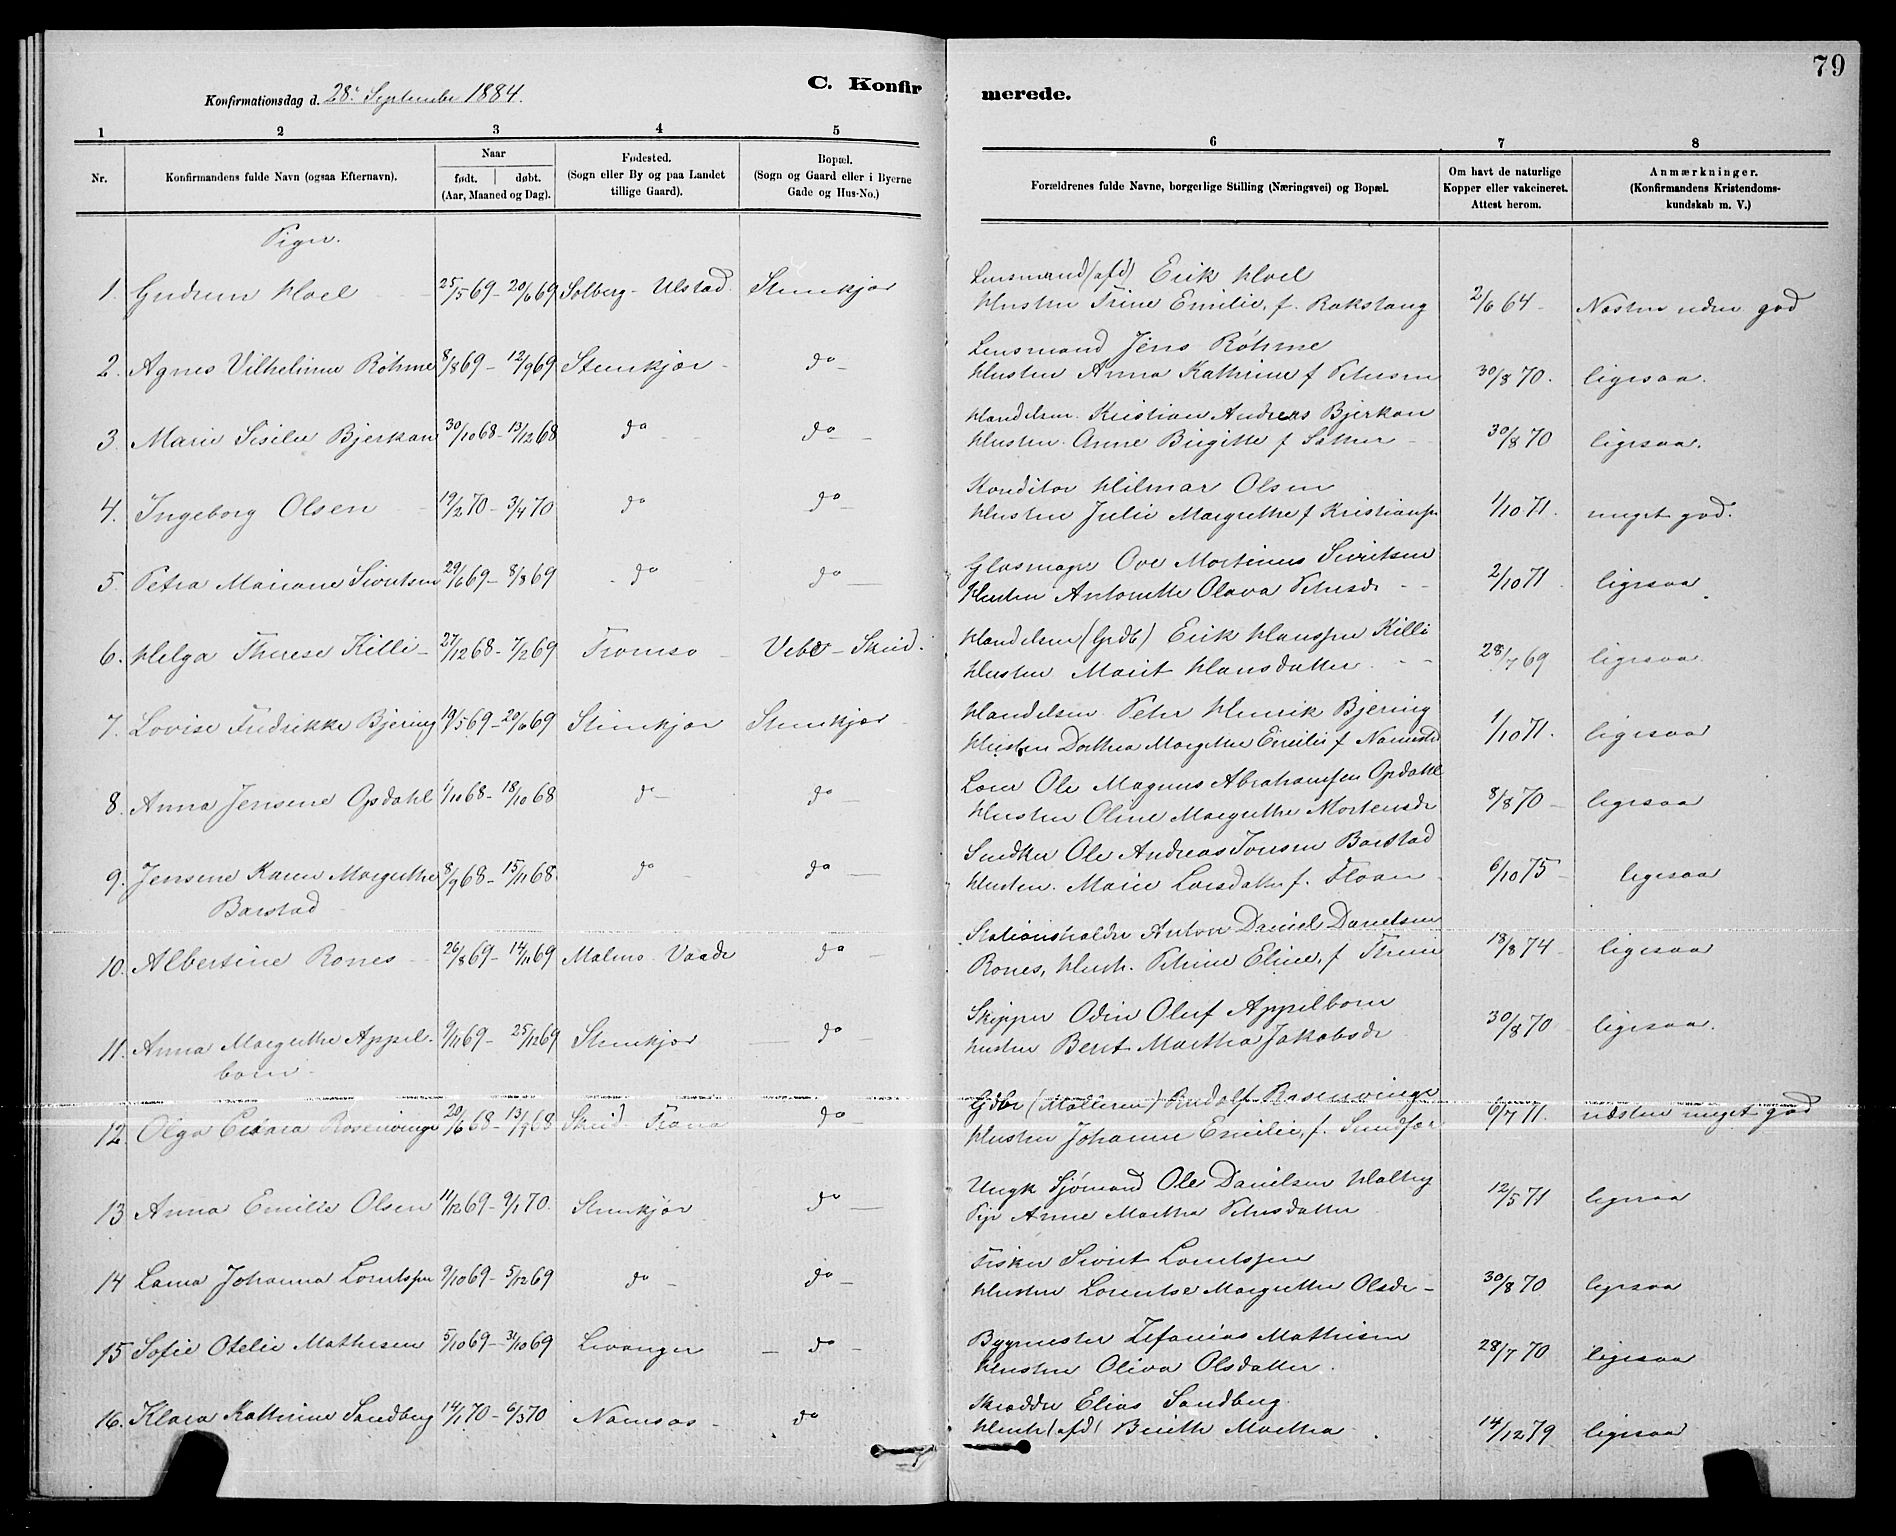 79
C. Konfirmerede.
Konfirmationsdag d. 28de September 1884.
1 2 3 4 5 6 7 8
Nr. Konfirmandens fulde Navn (ogsaa Efternavn). Naar født. døbt. (Aar, Maaned og Dag). Fødested. (Sogn eller By og paa Landet tillige Gaard). Bopæl. (Sogn og Gaard eller i Byerne Gade og Hus-No.) Forældrenes fulde Navne, borgerlige Stilling (Næringsvei) og Bopæl. Om havt de naturlige Kopper eller vakcineret. Attest herom. Anmærkninger. (Konfirmandens Kristendomskundskab m. V.)
Piger.
Lensmand (afd) Erik Hoel
1. Gudrun Hoel 25/5 69 - 20/6 69 Solberg - Ulstad Stenkjær Hustru Trine Emilie, f. Rokstang 2/6 64 Næsten uden god
Lensmand Jens Röhme
2. Agnes Vilhelmine Röhme 8/8 69 - 12/9 69 Stenkjær do Hustru Anna Kathrine f Petersen 30/8 70. ligesaa.
Handelsm. Kristian Anders Bjerkan
3. Marie Sisilie Bjerkan 30/10 68 - 13/12 68 do do Hustru Anne Birgitte f Sather 30/8 70 ligesaa.
Konditor Hilmar Olsen
4. Ingeborg Olsen 19/2 70 - 3/4 70 do do Hustru Julie Margrethe f Kristiansen 1/10 71. meget god.
Glasmager Ove Mortinus Sivertsen
5. Petra Mariane Sivertsen 29/6 69 - 8/8 69 do do Hustru Antonette Olava Petersdr 2/10 71 ligesaa
Handelsm (Grdb) Erik Hanssen Killi
6. Helga Therese Killi 27/12 68 - 7/2 69 Tromsø Vibe - Skind. Hustru Marit Hansdatter 28/7 69 ligesaa
Handelsm Peter Henrik Bjering
7. Lovise Fredrikke Bjering 19/5 69 - 20/6 69 Stenkjær Stenkjær Hustru Dorthea Margrethe Emilie f 1/10 71. ligesaa
Loer Ole Magnus Abrahamsen Opdahl
8. Anna Jensine Opdahl 1/10 68 - 18/10 68 do do Hustru Oline Margrethe Mortensdr 8/8 70 ligesaa
Snedker Ole Andreas Jonsen Barstad
9. Jensine Karen Margrethe 8/9 68 - 15/11 68 do do Hustru. Marie Larsdatter f. Floan 6/10 75 ligesaa
Barstad
Stationsholder Anton Daniel Danielsen
10. Albertine Rones 26/8 69 - 14/11 69 Malmo Vaade do Rones, Hustr. Petrine Eline, f Thune 18/8 74 ligesaa
Skipper Odin Oluf Appelborn
11. Anna Margrethe Appel- 9/11 69 - 25/12 69 Stenkjær do Hustru Berit Martha Jakobsdr 30/8 70 ligesaa.
born
Gdbr (Mølleren) Rudolf Rosenvinge
12 Olga Rosenvinge 20/6 68 - 13/9 68 Skind Trana do Hustru Johanne Emilie, f. Sundfær 6/7 71. næsten meget god
Ungk Sjømand Ole Danielsen Halby
13 Anna Emilie Olsen 11/12 69 - 9/1 70. Stenkjær do Pige Anne Martha Petersdatter 12/5 71 ligesaa
Fisker Sivert Lorntssen
14 Laura Johanna Lorntssen 9/10 69 - 5/12 69 do do Hustru Lorentse Margrethe Olsdr 30/8 70 ligesaa
Bygmester Zefanias Mathisen
15 Sofie Otelie Mathisen 5/10 69 - 31/10 69 Levanger do Hustru Oliva Olsdatter. 28/7 70 ligesaa
Skrædder Elias Sandberg
16. Klara Kathrine Sandberg 14/1 70 - 6/3 70 Namsos do Hustr (afd) Berith Martha 14/12 79 ligesaa